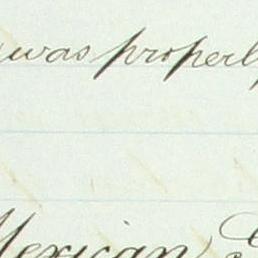 was properly
Mexican